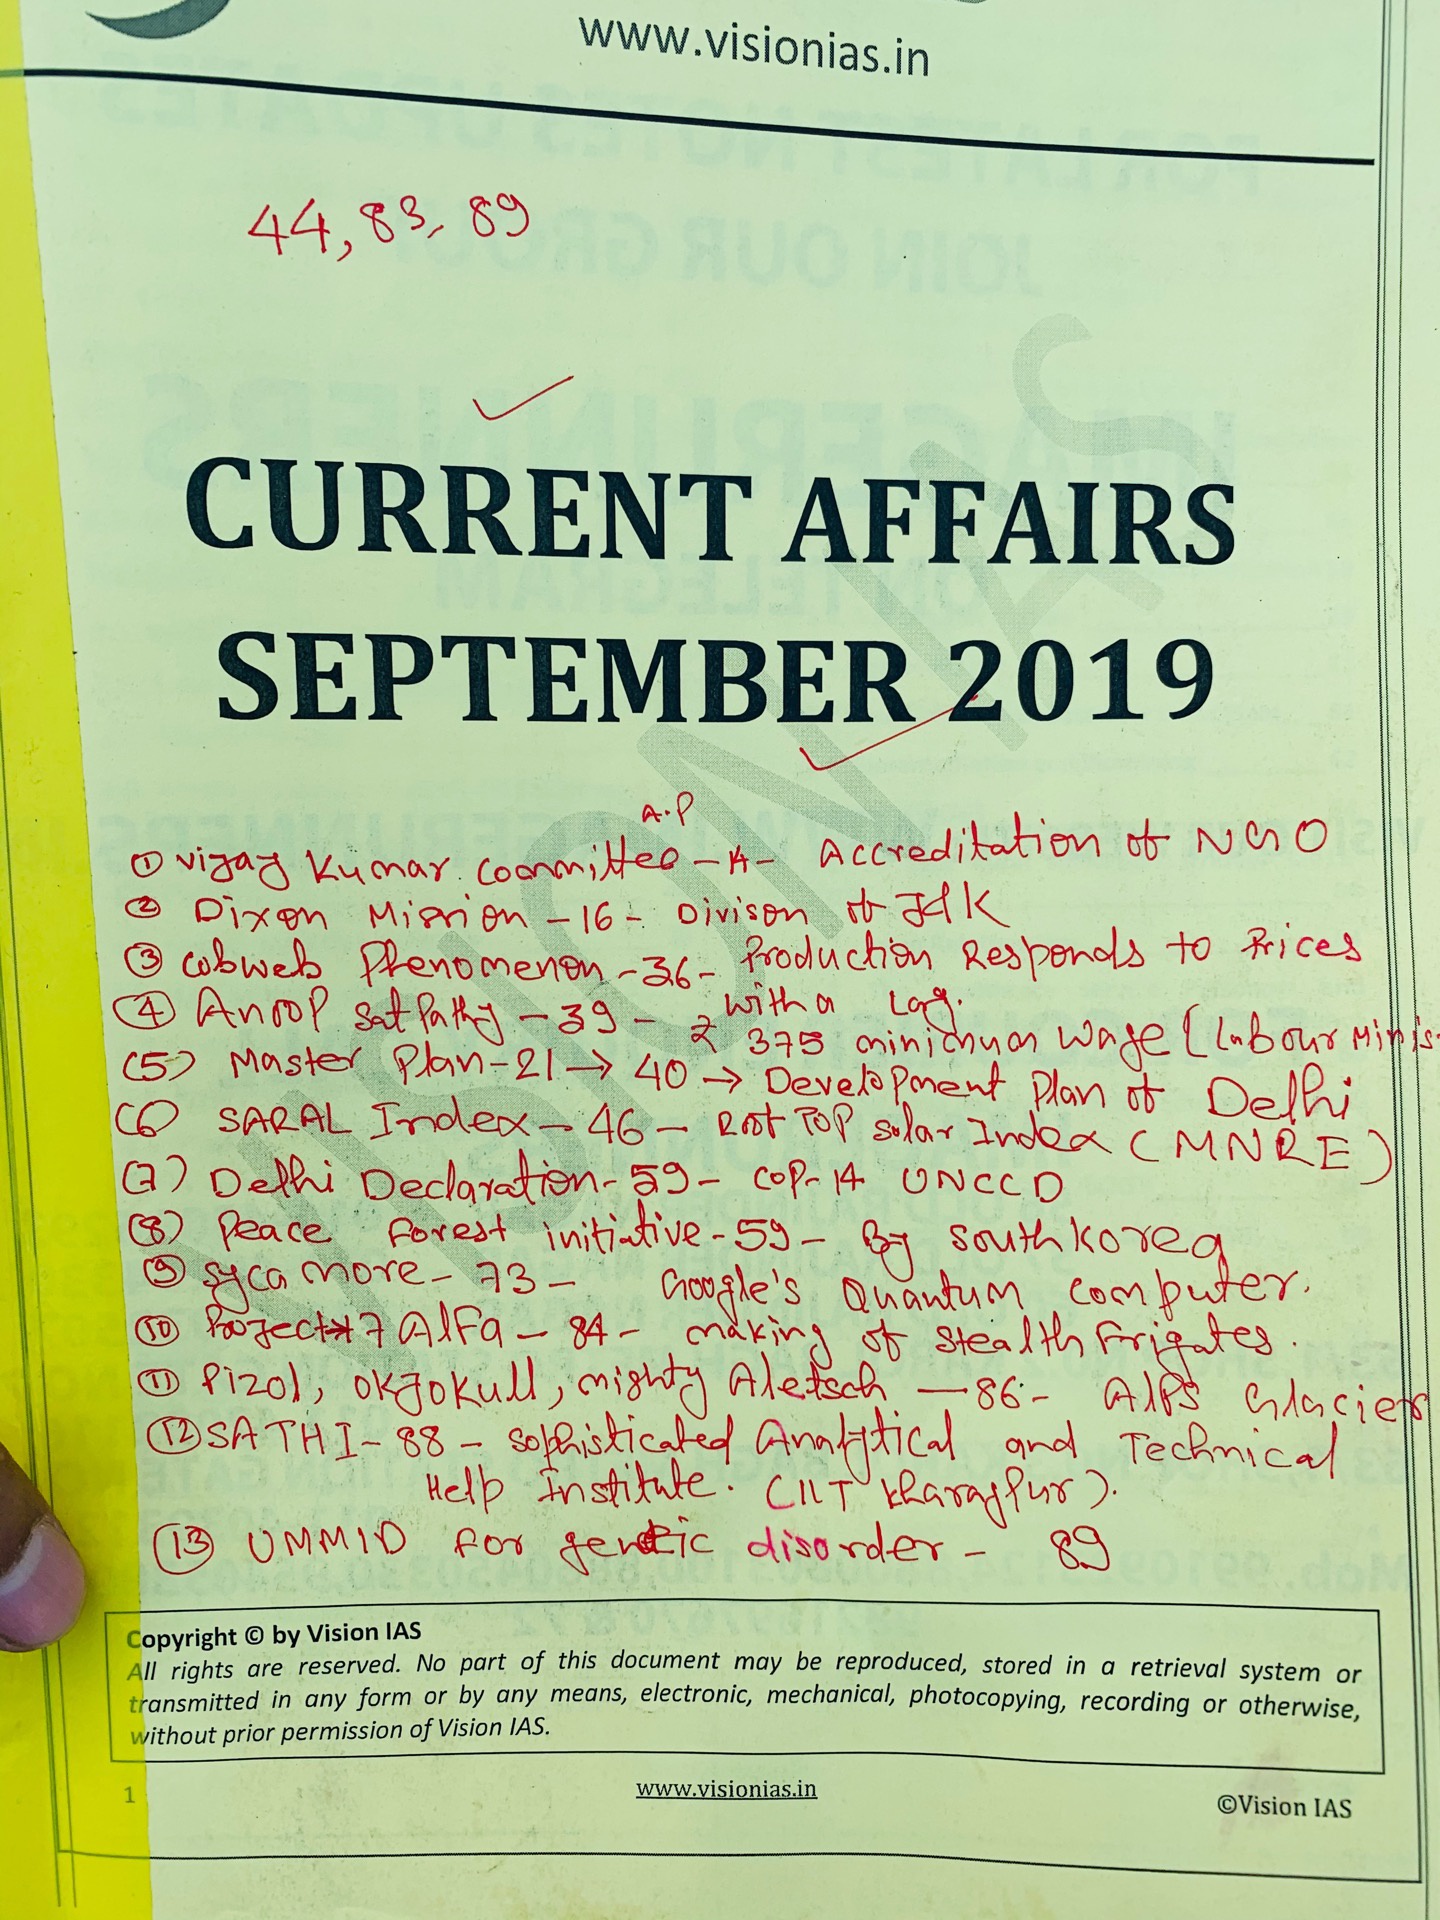 www.visionias.in
44, 83, 89
CURRENT AFFAIRS
SEPTEMBER 2019
VISION IAS
A.P
① Vijay Kumar Committee - 14 - Accreditation of NGO
② Dixon Mission - 16 - Divison of J&K
③ Cobweb Phenomenon - 36 - Production Responds to Prices
with a Lag.
④ Anoop Satpathy - 39 - ₹ 375 minimum wage (Labour Minis-
(5) Master Plan-21 → 40 → Development Plan of Delhi
(6) SARAL Index - 46 - Roof TOP Solar Index (MNRE)
(7) Delhi Declaration - 59 - COP-14 UNCCD
(8) Peace Forest initiative - 59 - By South Korea
⑨ Sycamore - 73 - Google's Quantum Computer.
⑩ Project 17 Alfa - 84 - making of Stealth Frigates.
⑪ Pizol, Okjokull, mighty Aletsch - 86 - Alps Glacier
⑫ SATHI - 88 - Sophisticated Analytical and Technical
Help Institute. (IIT Kharagpur).
⑬ UMMID for genetic disorder - 89
Copyright © by Vision IAS
All rights are reserved. No part of this document may be reproduced, stored in a retrieval system or
transmitted in any form or by any means, electronic, mechanical, photocopying, recording or otherwise,
without prior permission of Vision IAS.
1 www.visionias.in ©Vision IAS